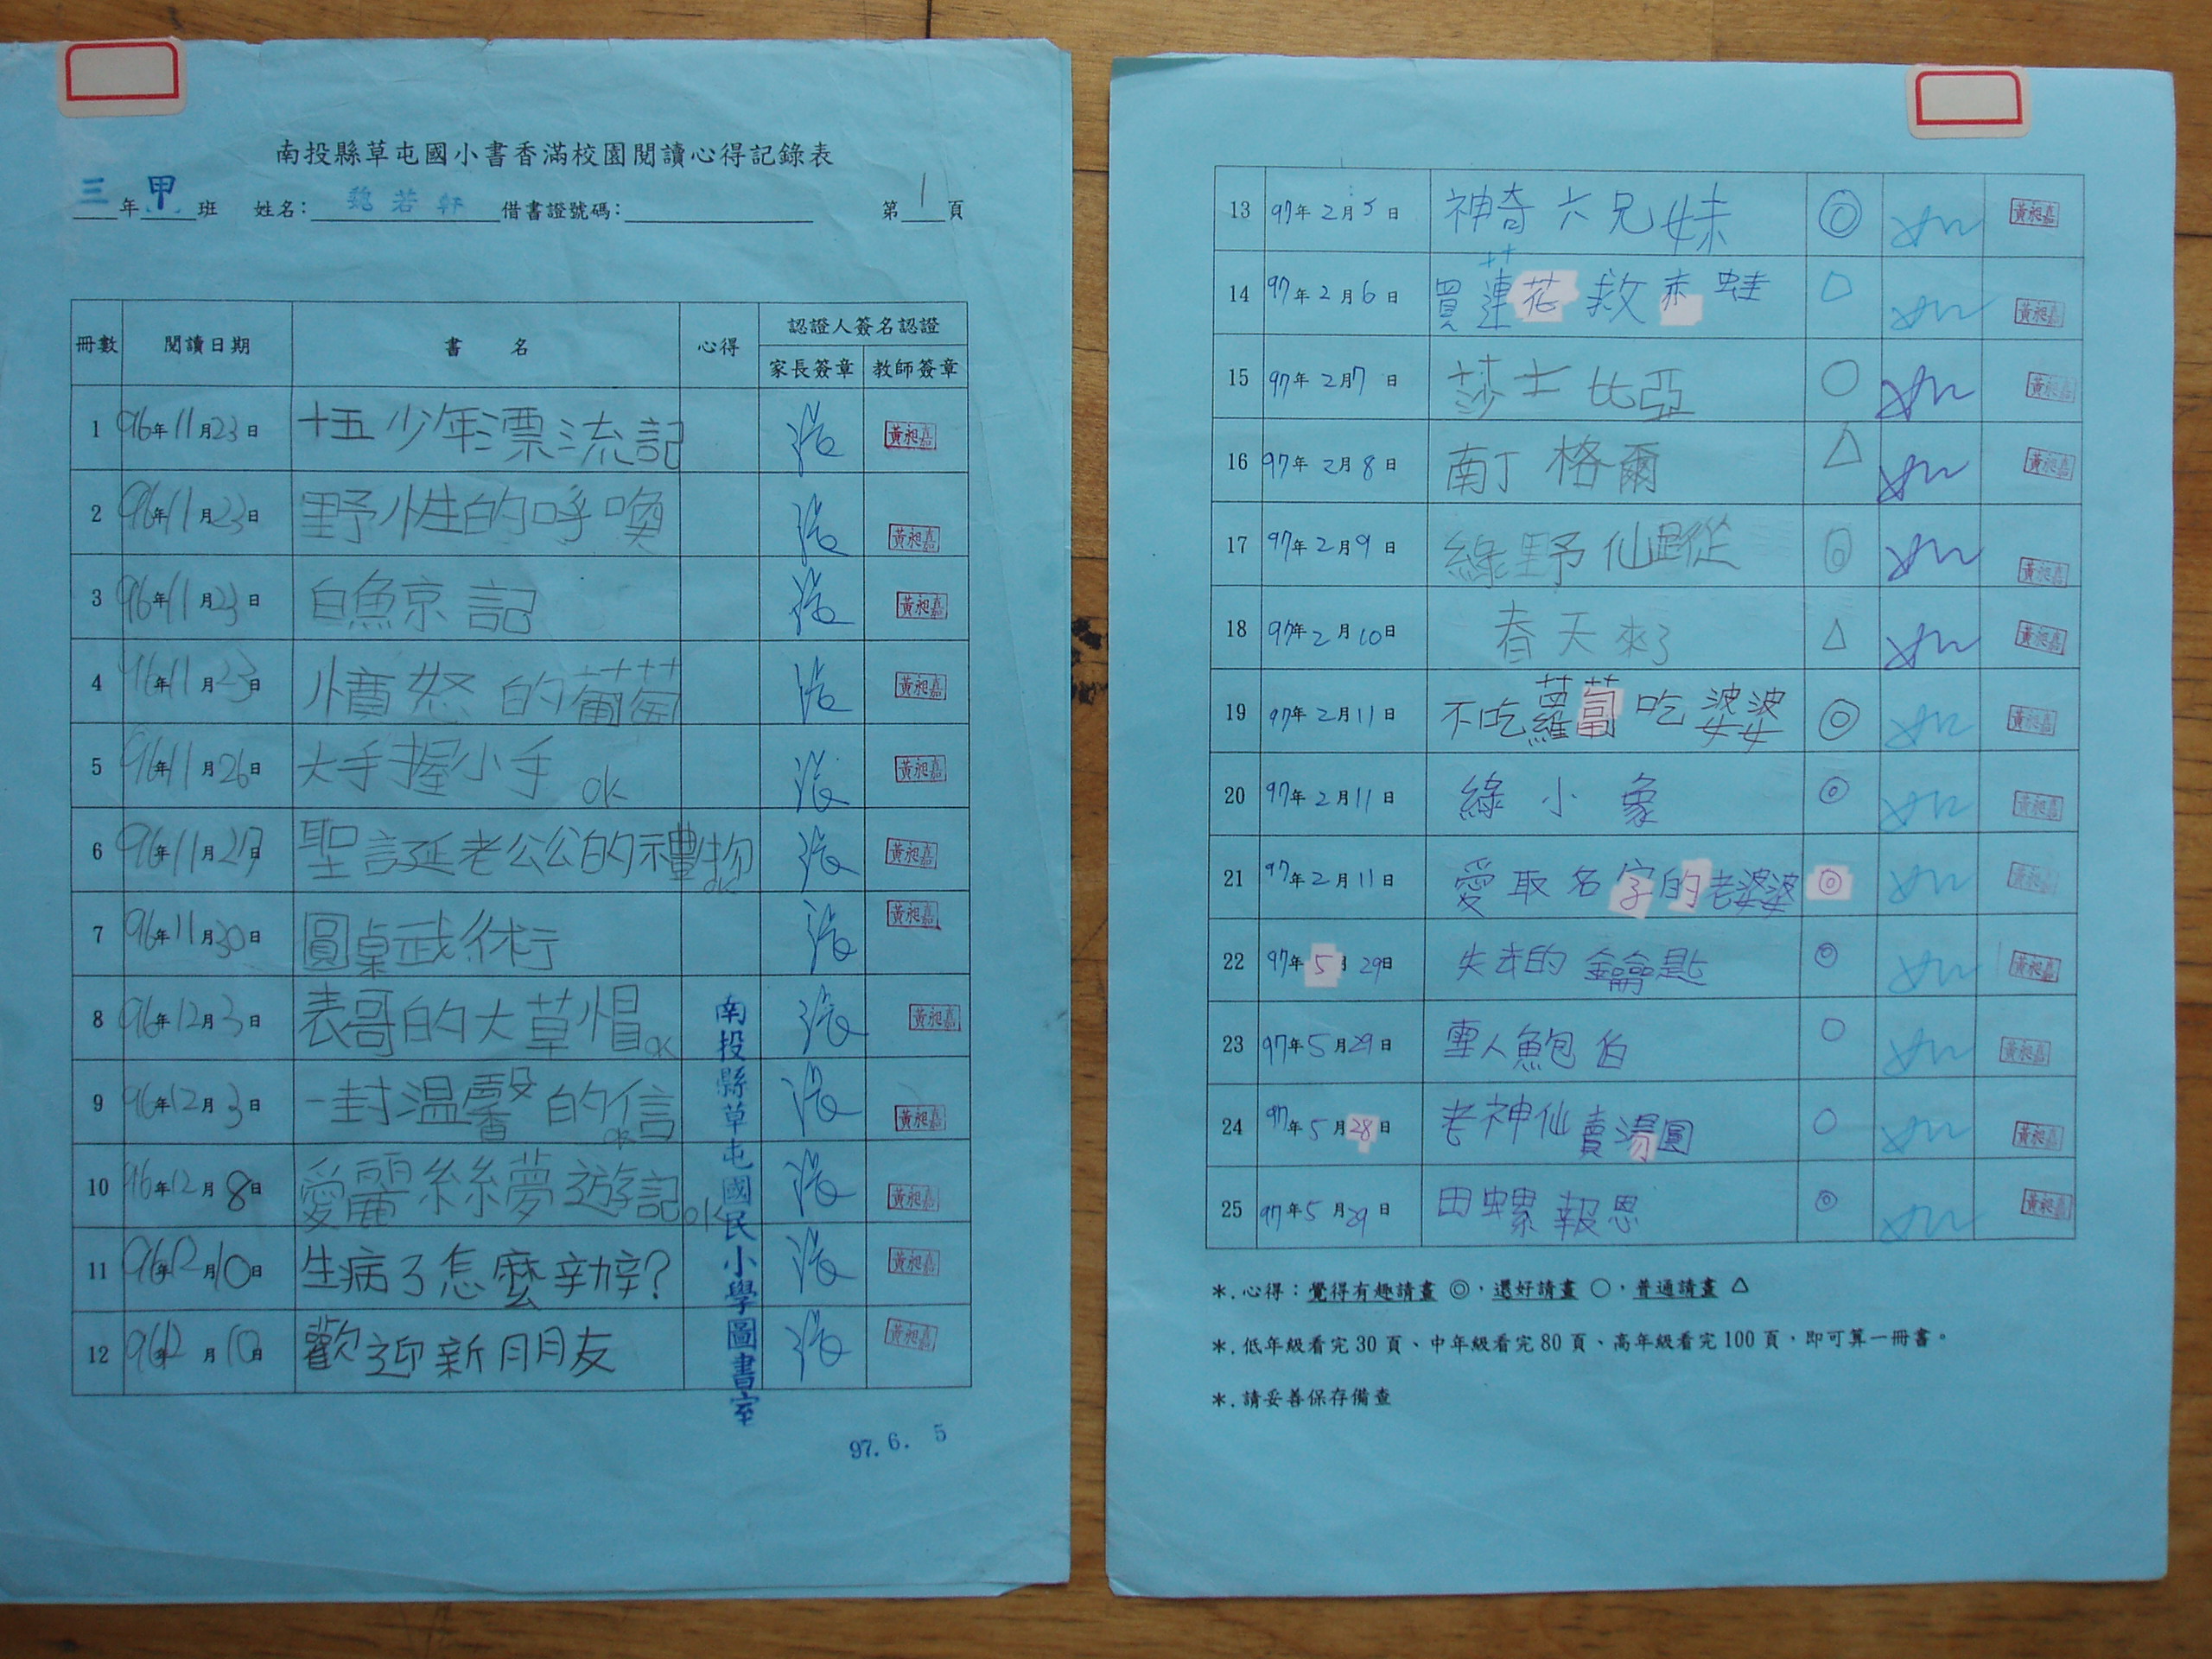 南投縣草屯國小書香滿校園閱讀心得記錄表
三年甲班 姓名：魏若軒 借書證號碼： 第1頁
冊數 閱讀日期 書名 心得 認證人簽名認證
家長簽章 教師簽章
1 96年11月23日 十五少年漂流記 黃昶嘉
2 96年11月23日 野性的呼喚 黃昶嘉
3 96年11月23日 白鯨記 黃昶嘉
4 96年11月23日 憤怒的葡萄 黃昶嘉
5 96年11月26日 大手握小手 ok 黃昶嘉
6 96年11月27日 聖誕老公公的禮物 ok 黃昶嘉
7 96年11月30日 圓桌武術 黃昶嘉
8 96年12月3日 表哥的大草帽 ok 黃昶嘉
9 96年12月3日 一封溫馨的信 ok 黃昶嘉
10 96年12月8日 愛麗絲夢遊記 ok 黃昶嘉
11 96年12月10日 生病了怎麼辦? 黃昶嘉
12 96年12月10日 歡迎新朋友 黃昶嘉
南投縣草屯國民小學圖書室
97. 6. 5
13 97年2月5日 神奇六兄妹 ◎ 黃昶嘉
14 97年2月6日 買蓮花救赤蛙 ○ 黃昶嘉
15 97年2月7日 莎士比亞 ○ 黃昶嘉
16 97年2月8日 南丁格爾 △ 黃昶嘉
17 97年2月9日 綠野仙蹤 ◎ 黃昶嘉
18 97年2月10日 春天來了 △ 黃昶嘉
19 97年2月11日 不吃蘿蔔吃婆婆 ◎ 黃昶嘉
20 97年2月11日 綠小象 ◎ 黃昶嘉
21 97年2月11日 愛取名字的老婆婆 ◎ 黃昶嘉
22 97年5月29日 失去的鑰匙 ◎ 黃昶嘉
23 97年5月29日 雪人鮑伯 ○ 黃昶嘉
24 97年5月28日 老神仙賣湯圓 ○ 黃昶嘉
25 97年5月29日 田螺報恩 ◎ 黃昶嘉
＊.心得：覺得有趣請畫◎，還好請畫○，普通請畫△
＊.低年級看完30頁、中年級看完80頁、高年級看完100頁，即可算一冊書。
＊.請妥善保存備查